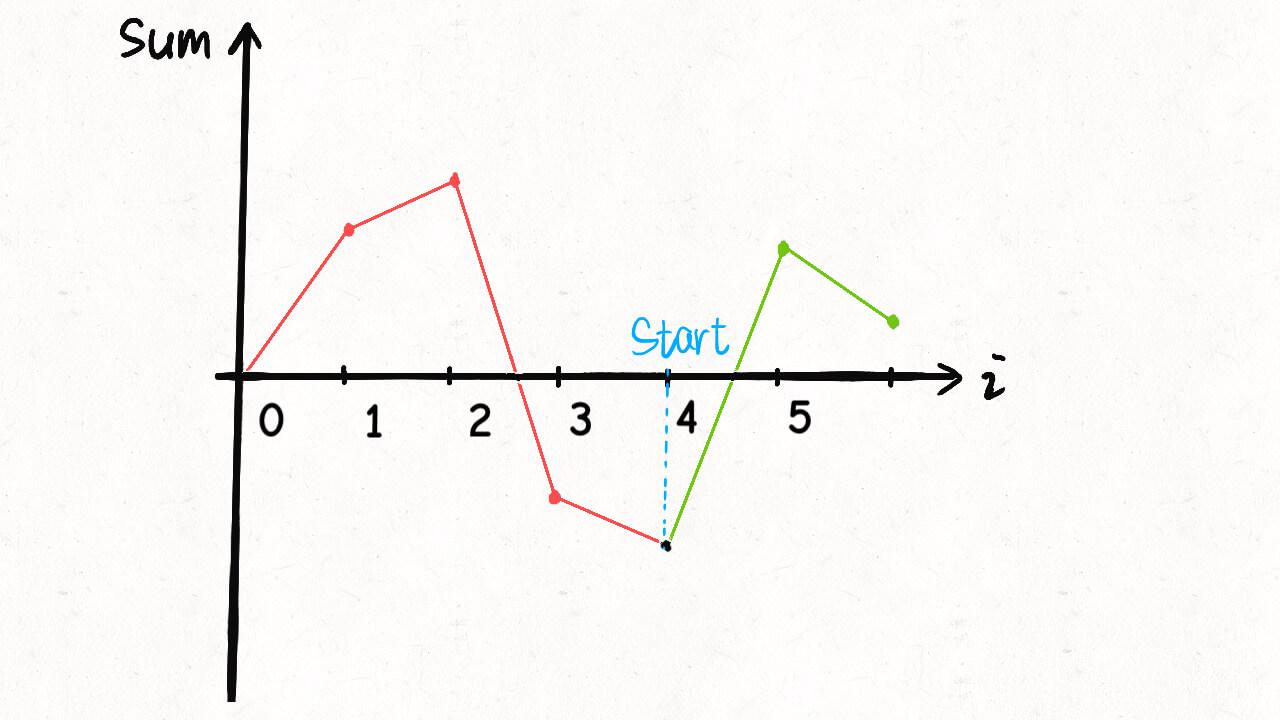 Sum
Start
i
0 1 2 3 4 5